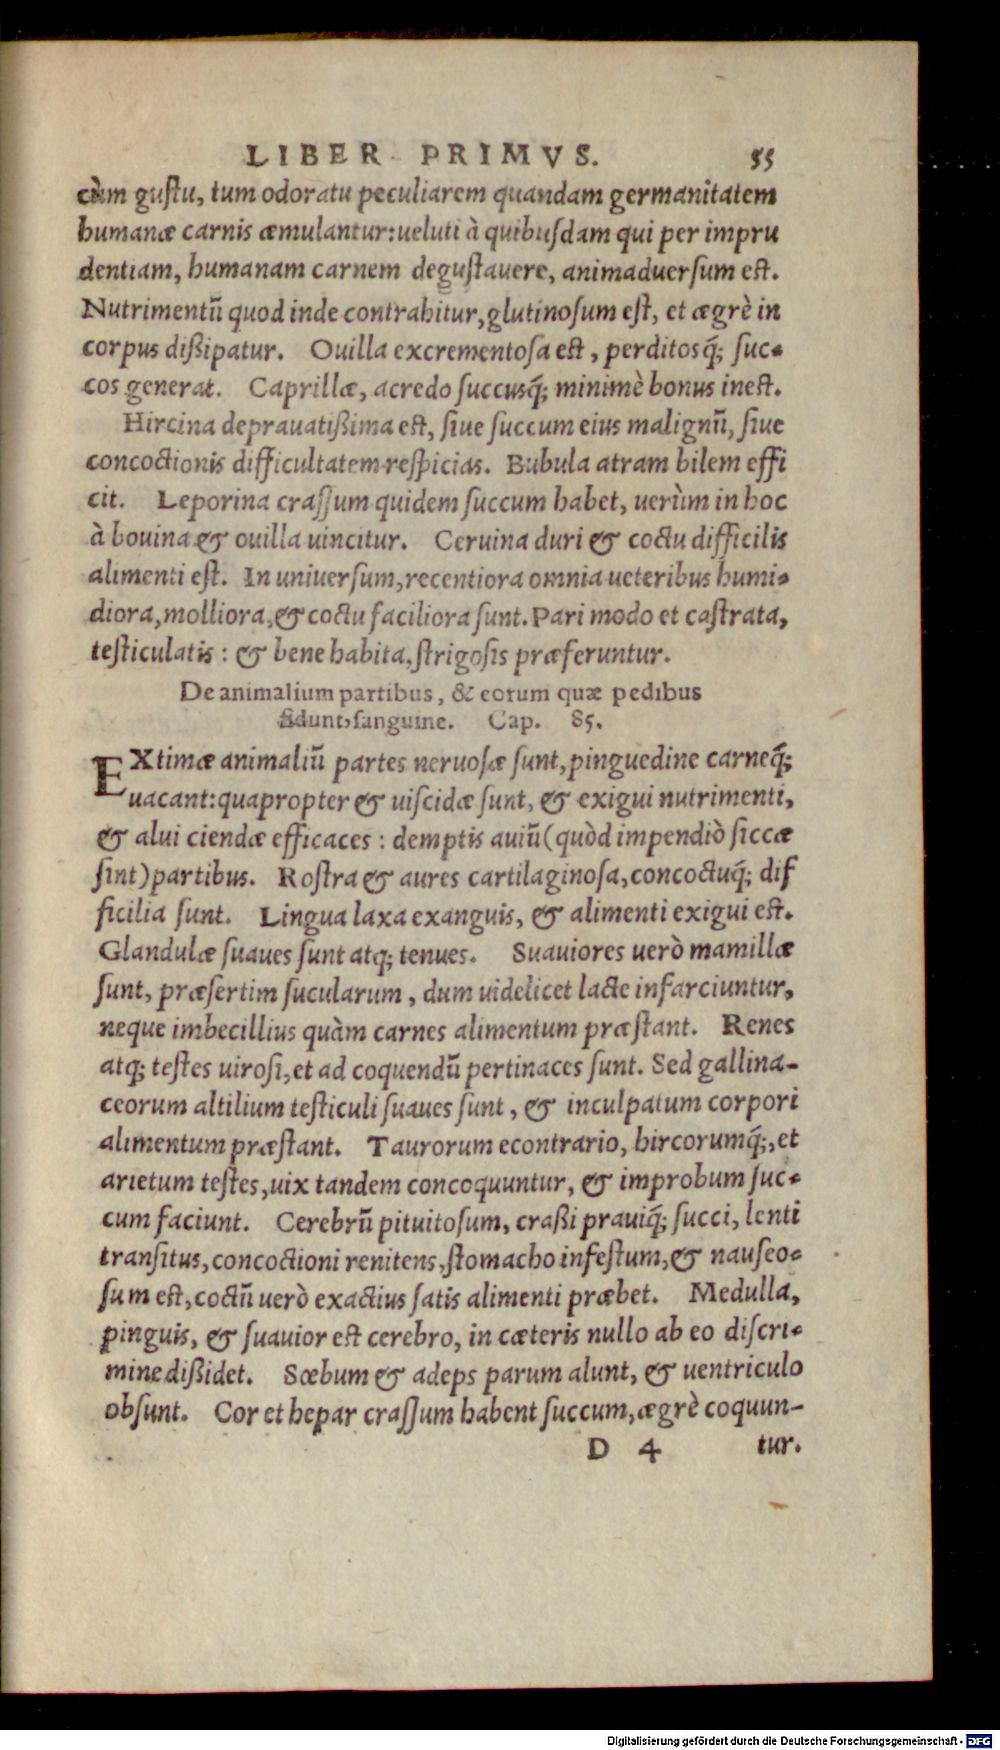 LIBER PRIMVS. 55
cùm gustu, tum odoratu peculiarem quandam germanitatem
humanæ carnis æmulantur: ueluti à quibusdam qui per impru
dentiam, humanam carnem degustauere, animaduersum est.
Nutrimentũ quod inde contrahitur, glutinosum est, et ægrè in
corpus dißipatur. Ouilla excrementosa est, perditosq́; suc-
cos generat. Caprillæ, acredo succusq́; minimè bonus inest.
Hircina deprauatißima est, siue succum eius malignũ, siue
concoctionis difficultatem respicias. Bubula atram bilem effi
cit. Leporina crassum quidem succum habet, uerùm in hoc
à bouina & ouilla uincitur. Ceruina duri & coctu difficilis
alimenti est. In uniuersum, recentiora omnia ueteribus humi-
diora, molliora, & coctu faciliora sunt. Pari modo et castrata,
testiculatis: & bene habita, strigosis præferuntur.
De animalium partibus, & eorum quæ pedibus
fidunt, sanguine. Cap. 85.
EXtimæ animaliũ partes neruosæ sunt, pinguedine carneq́;
uacant: quapropter & uiscidæ sunt, & exigui nutrimenti,
& alui ciendæ efficaces: demptis auiũ (quòd impendiò siccæ
sint) partibus. Rostra & aures cartilaginosa, concoctuq́; dif
ficilia sunt. Lingua laxa exanguis, & alimenti exigui est.
Glandulæ suaues sunt atq; tenues. Suauiores uerò mamillæ
sunt, præsertim sucularum, dum uidelicet lacte infarciuntur,
neque imbecillius quàm carnes alimentum præstant. Renes
atq; testes uirosi, et ad coquendũ pertinaces sunt. Sed gallina-
ceorum altilium testiculi suaues sunt, & inculpatum corpori
alimentum præstant. Taurorum econtrario, hircorumq́;, et
arietum testes, uix tandem concoquuntur, & improbum suc-
cum faciunt. Cerebrũ pituitosum, craßi prauiq́; succi, lenti
transitus, concoctioni renitens, stomacho infestum, & nauseo-
sum est, coctũ uerò exactius satis alimenti præbet. Medulla,
pinguis, & suauior est cerebro, in cæteris nullo ab eo discri-
mine dißidet. Sæbum & adeps parum alunt, & uentriculo
obsunt. Cor et hepar crassum habent succum, ægrè coquun-
D 4 tur.
Digitalisierung gefördert durch die Deutsche Forschungsgemeinschaft - DFG